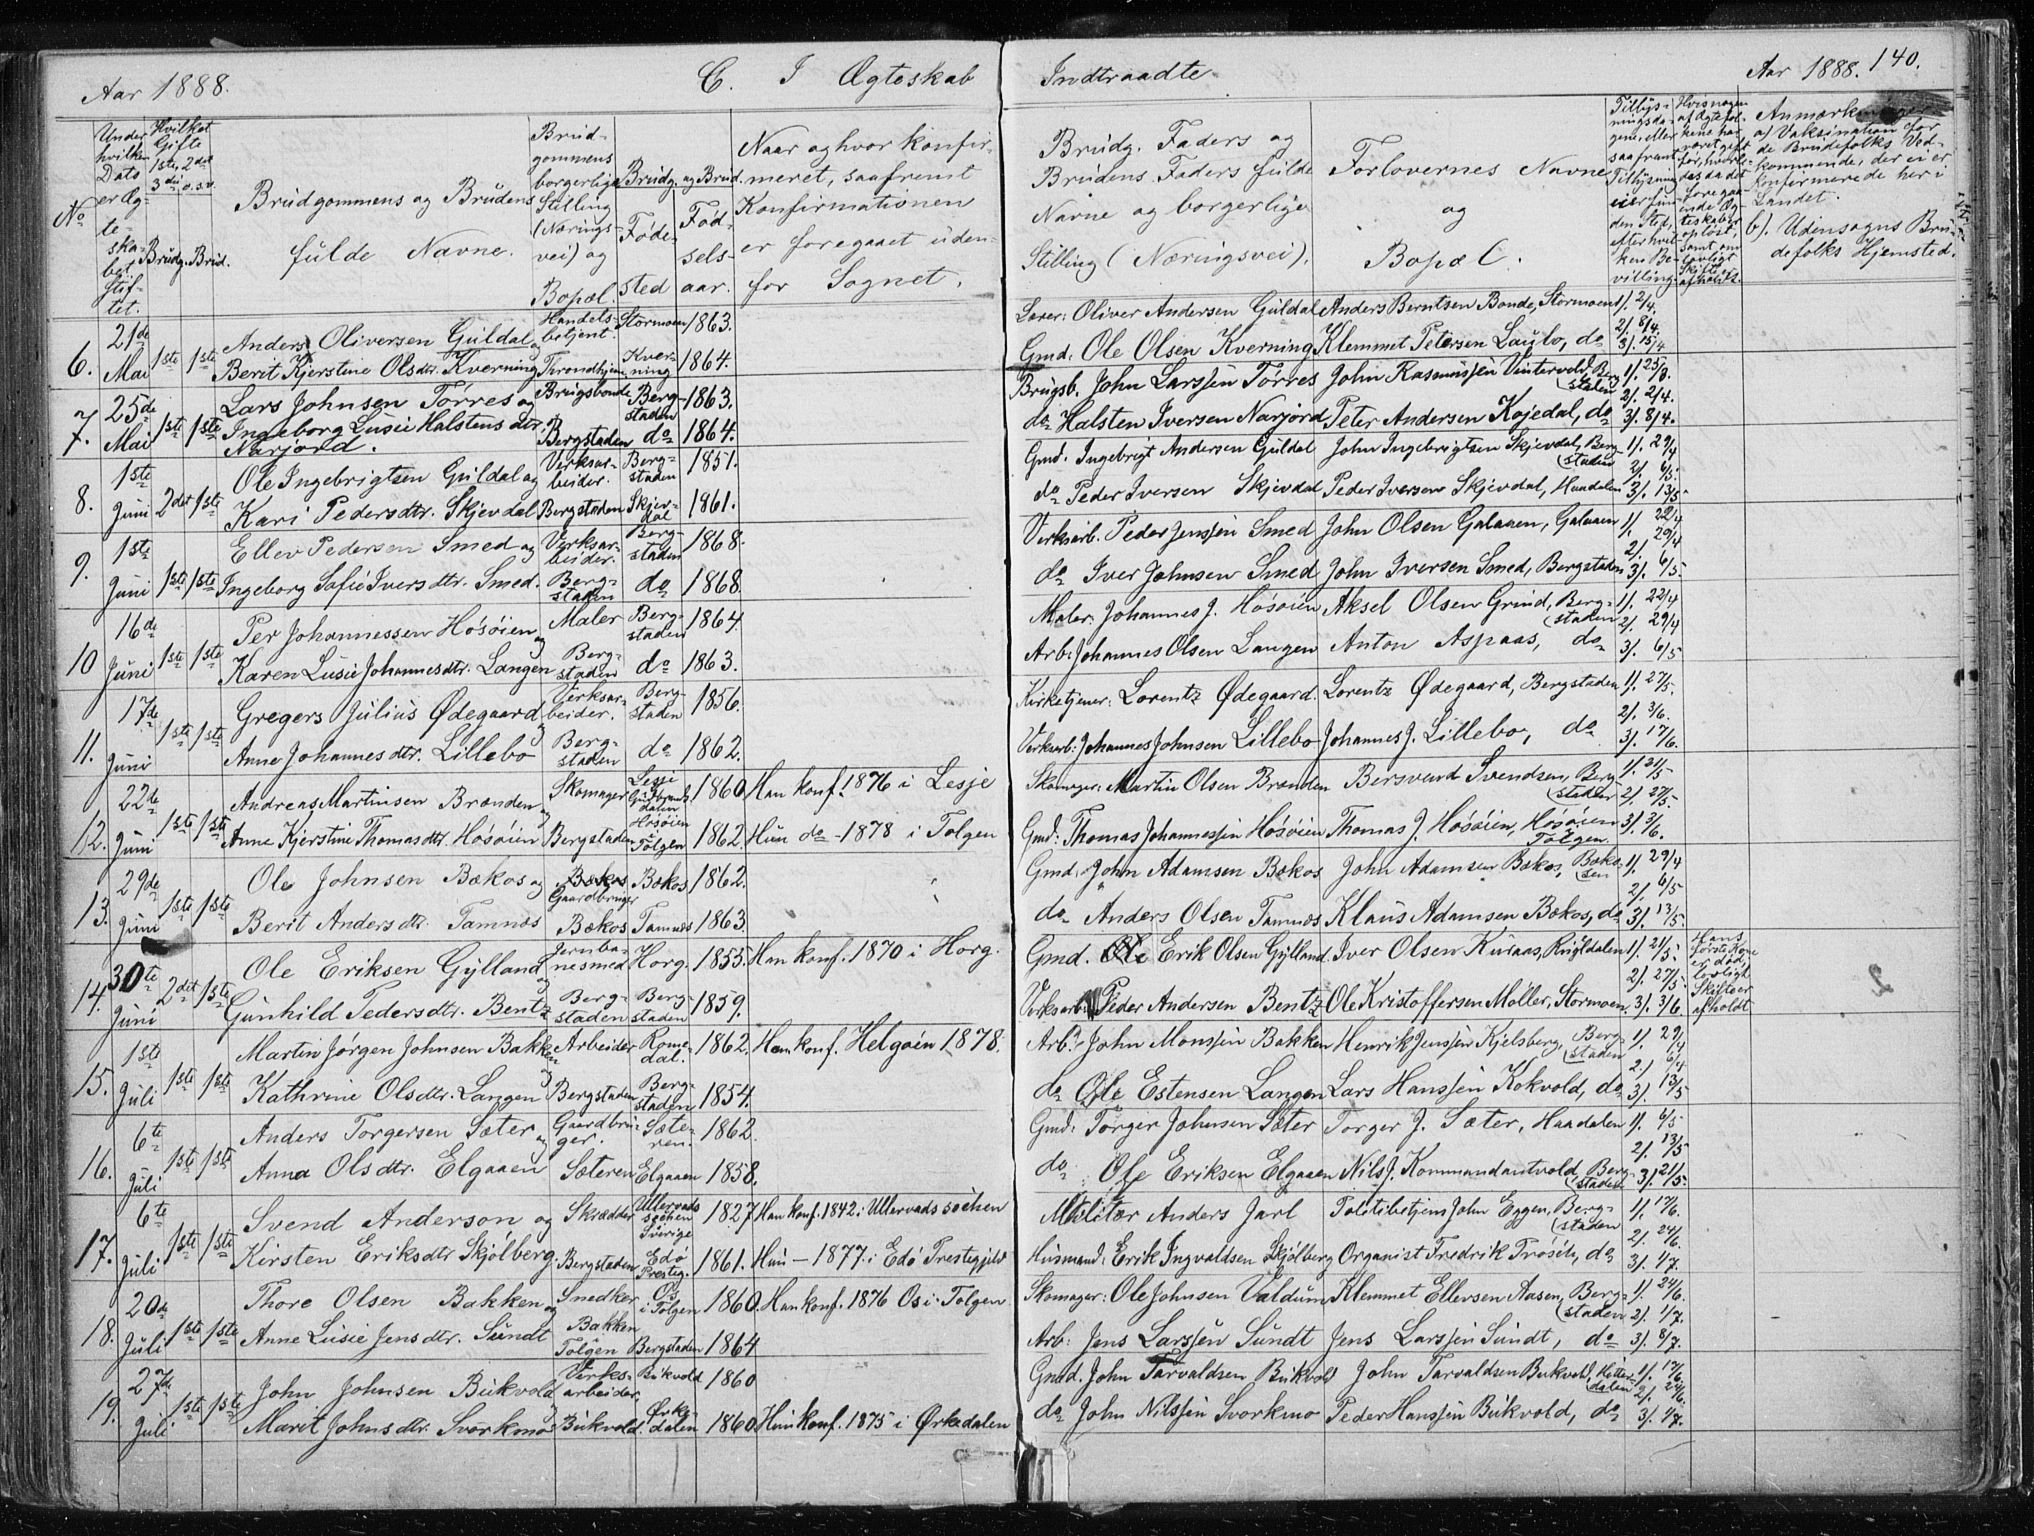 Aar 1888. C. I Ægteskab Indtraadte Aar 1888. 140.
No
Under hvilken Dato er Ægteskabet Stiftet.
Hvilket Gifte 1ste, 2det 3die o.s.v. Brudg. Brud.
Brudgommens og Brudens fulde Navne.
Brudgommens borgerlige Stilling (Næringsvei) og Bopæl.
Brudg. og Brud. Fødested Fødselsaar.
Naar og hvor konfirmeret, saafremt Konfirmationen er foregaaet udenfor Sognet.
Brudg. Faders og Brudens Faders fulde Navne og borgerlige Stilling (Næringsvei).
Forlovernes Navne og Bopæl.
Anmærkninger a) Vaksination for de Brudefolks Vedkommende, der ei er Konfirmerede her i Landet.
b). Udensogns Brudefolks Hjemsted.
6. 21de Mai 1ste 1ste Anders Oliversen Guldal og Handelsbetjent. Stormoen 1863. Lærer: Oliver Andersen Guldal Anders Berntsen Bonde, Stormoen 1/. 2/4.
Berit Kjerstine Olsdtr. Kverning Throndhjem Kverning 1864. Gmd. Ole Olsen Kverning Klemmet Petersen Laulo, do 2/. 8/4. 3/. 15/4
7. 25de Mai 1ste 1ste Lars Johnsen Torres og Brugsbonde Bergstaden 1863. Brugsb. John Larssen Torres John Rasmussen Vintervold, Bergstaden 1/. 25/3.
Ingeborg Lusie Halstens dtr. Narjord. Bergstaden do 1864. do Halsten Iversen Narjord Peter Andersen Kojedal, do 2/. 2/4. 3/. 8/4.
8. 1ste Juni 2det 1ste Ole Ingebrigtsen Guldal og Verksarbeider. Bergstaden 1851. Gmd. Ingebrigt Andersen Guldal John Ingebrigtsen Skjevdal, Bergstaden 1/. 29/4
Kari Pedersdtr. Skjevdal Bergstaden Skjevdal 1861. do Peder Iversen Skjevdal Peder Iversen Skjevdal, Haadalen 2/. 6/5. 3/. 13/5
9. 1ste Juni 1ste 1ste Ellev Pedersen Smed og Verksarbeider. Bergstaden 1868. Verksarb. Peder Jenssen Smed John Olsen Galaaen, Galaaen 1/. 22/4
Ingeborg Sofie Iversdtr. Smed. Bergstaden do 1868. do Iver Johnsen Smed John Iversen Smed, Bergstaden 2/. 29/4 3/. 6/5.
10 16de Juni 1ste 1ste Per Johannessen Høsøien og Maler Bergstaden 1864. Maler. Johannes J. Høsøien Aksel Olsen Grind, Bergstaden 1/. 22/4
Karen Lusie Johannesdtr. Langen Bergstaden do 1863. Arb: Johannes Olsen Langen Anton Aspaas, do 2/. 29/4 3/. 6/5
11. 17de Juni 1ste 1ste Gregers Julius Ødegaard og Verksarbeider. Bergstaden 1856. Kirketjener: Lorentz Ødegaard. Lorentz Ødegaard, Bergstaden 1/. 27/5.
Anne Johannesdtr. Lillebo Bergstaden do 1862. Verksarb: Johannes Johnsen Lillebo Johannes J. Lillebo, do 2/. 3/6. 3/. 17/6.
12. 22de Juni 1ste 1ste Andreas Martinsen Brænden og Skomager Lesje Gudbrandsdalen 1860. Han konf. 1876 i Lesje Skomager: Martin Olsen Brænden Bersvend Svendsen, Bergstaden 1/. 21/5
Anne Kjerstine Thomasdtr. Høsøien Bergstaden Høsøien i Tolgen 1862. Hun do - 1878 i Tolgen Gmd: Thomas Johannessen Høsøien Thomas J. Høsøien, Høsøien Tolgen. 2/. 27/5. 3/. 3/6.
13. 29de Juni 1ste 1ste Ole Johnsen Bækos og Gaardbruger Bækos 1862. Gmd. John Adamsen Bækos John Adamsen Bækos, Bækosen 1/. 29/4
Berit Andersdtr. Tamnæs Bækos Tamnæs 1863. do Anders Olsen Tamnæs Klaus Adamsen Bækos, do 2/. 6/5 3/. 13/5.
14. 30te Juni 2det 1ste Ole Eriksen Gylland og Jernbanesmed Horg. 1855. Han konf. 1870 i Horg. Gmd. Erik Olsen Gylland. Iver Olsen Kuraas, Rugldalen 1/. 21/5. Hans første Kone er død, lovligt Skifte er afholdt
Gunhild Pedersdtr. Bentz Bergstaden Bergstaden 1859. Verksarb: Peder Andersen Bentz Ole Kristoffersen Møller, Stormoen. 2/. 27/5. 3/. 3/6.
15. 1ste Juli 1ste 1ste Martin Jørgen Johnsen Bakken og Arbeider Romedal. 1862. Han konf. Helgøen 1878. Arb: John Monssen Bakken Henrik Jenssen Kjelsberg, Bergstaden 1/. 29/4
Kathrine Olsdtr. Langen Bergstaden Bergstaden 1854. do Ole Estensen Langen Lars Hanssen Kokvold, do 2/. 6/4 3/. 13/5
16. 6te Juli 1ste 1ste Anders Torgersen Sæter og Gaardbruger. Sæteren. 1862. Gmd: Torger Johnsen Sæter Torger J. Sæter, Haadalen 1/. 6/5
Anna Olsdtr. Elgaaen Sæteren Elgaaen 1858. do. Ole Eriksen Elgaaen Nils J. Kommandantvold, Bergstaden 2/. 13/5 3/. 21/5.
17. 6te Juli 1ste 1ste Svend Anderson og Skrædder Ullervads sochen Sverige 1827 Han konf. 1842 i Ullervads sochen Militær Anders Jarl Politibetjent John Eggen, Bergstaden 1/. 17/6.
Kirsten Eriksdtr Skjølberg. Bergstaden Edø Prestegj. 1861. Hun - 1877 i Edø Prestegjeld Husmand: Erik Ingvaldsen Skjølberg Organist Fredrik Frøseth, do 2/. 24/6. 3/. 1/7.
18. 20de Juli 1ste 1ste Thore Olsen Bakken og Snedker Os i Tolgen 1860. Han konf. 1876 Os i Tolgen Skomager: Ole Johnsen Valdum Klemmet Ellevsen Aasen, Bergstaden 1/. 24/6.
Anne Lusie Jensdtr. Sundt Bakken Tolgen Bergstaden 1864 Arb: Jens Larssen Sundt Jens Larssen Sundt, do 2/. 1/7. 3/. 8/7.
19. 27de Juli 1ste 1ste John Johnsen Bukvold og Verksarbeider Bukvold 1860 Gmd. John Tarvaldsen Bukvold John Tarvaldsen Bukvold, Hitterdalen 1/. 17/6.
Marit Johnsdtr. Svorkmo Bukvold. Ørkedalen 1860 Hun konf. 1875 i Ørkedalen do John Nilssen Svorkmo Peder Hanssen Bukvold, do 2/. 24/6. 3/. 1/7.